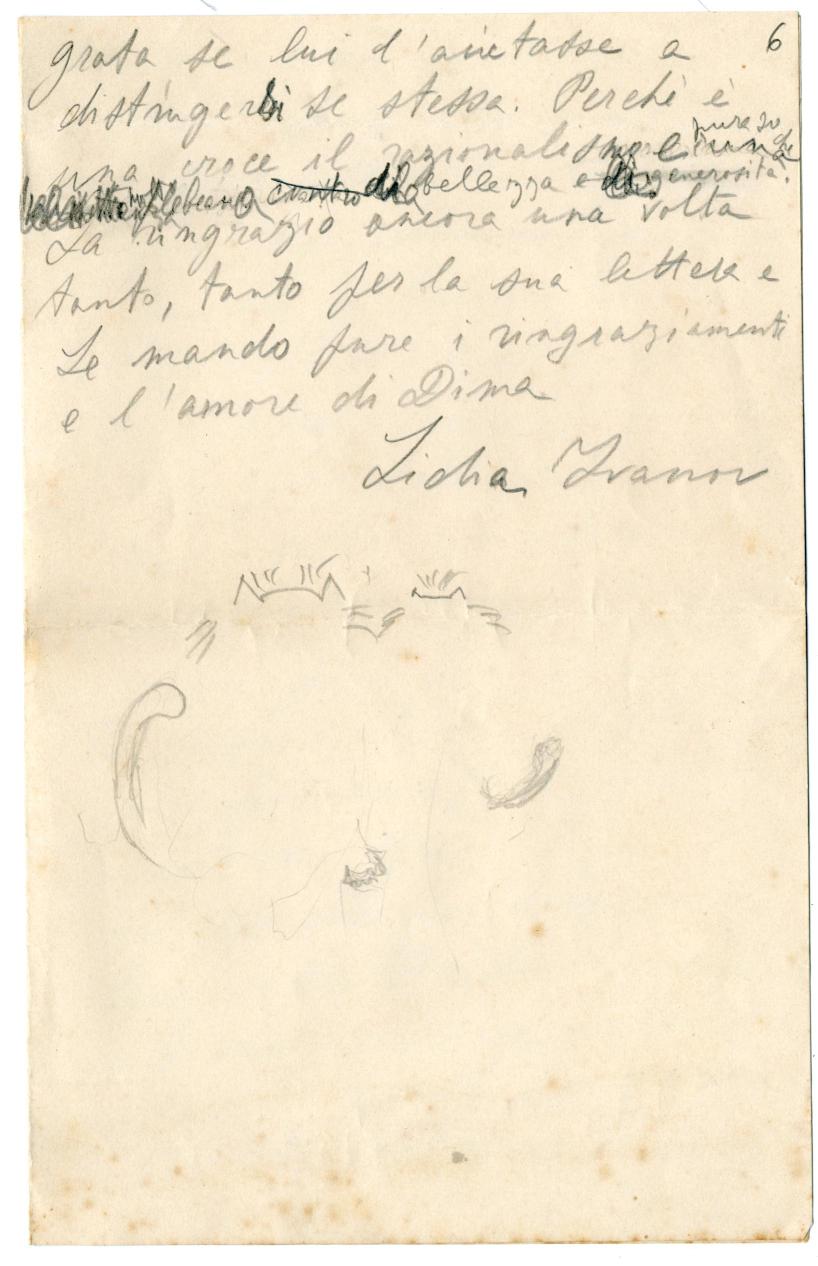 6
grata se lui l'aiutasse a
distinger se stessa. Perché è
una croce il razionalismo e
bellezza e generosità.
La ringrazio ancora una volta
tanto, tanto per la sua lettera e
Le mando pure i ringraziamenti
e l'amore di Dima
Lidia Ivanov